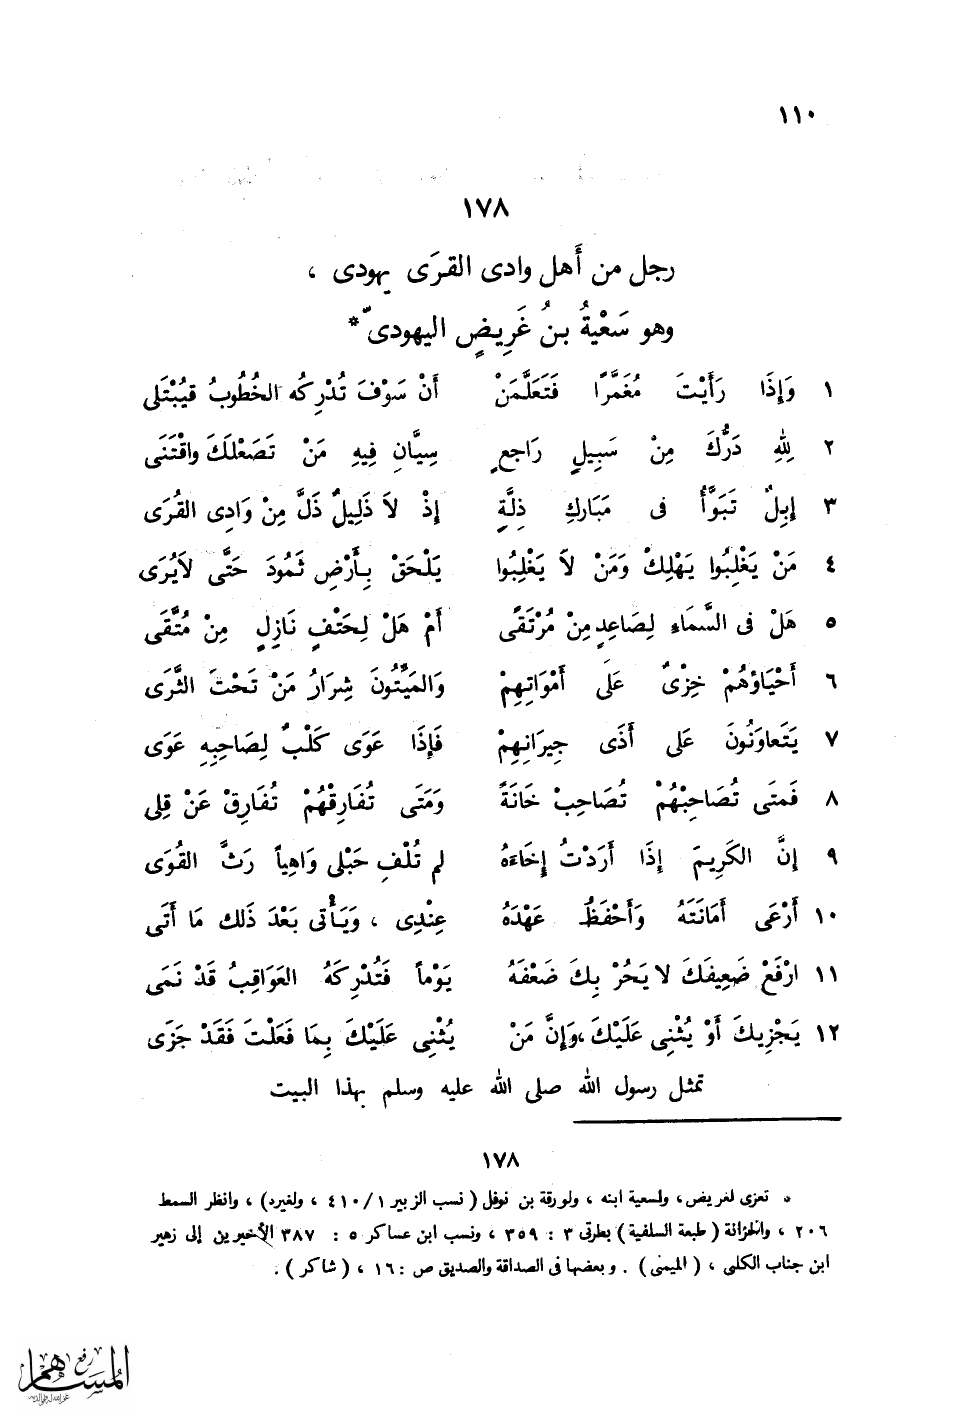 ١١٠
١٧٨
رجل من أَهل وادى القرَى يهودى ،
وهو سَعْيةُ بنُ غَرِيضٍ اليهودىّ *
١ وَإِذَا رَأَيْتَ مُغَمَّرًا فَتَعَلَّمَنْ أَنْ سَوْفَ تُدْرِكُه الخُطُوبُ فيُبْتَلى
٢ لِلهِ دَرُّكَ مِنْ سَبِيلٍ رَاجعٍ سِيَّانِ فِيهِ مَنْ تَصَعْلَكَ واقْتَنَى
٣ إِبِلٌ تَبَوَّأُ فى مَبَارِكِ ذِلَّةٍ إِذْ لاَ ذَلِيلٌ ذَلَّ مِنْ وَادِى القُرَى
٤ مَنْ يَغْلِبُوا يَهْلِكْ وَمَنْ لاَ يَغْلِبُوا يَلْحَقْ بِأَرْضِ ثَمُودَ حَتَّى لاَيُرَى
٥ هَلْ فى السَّمَاءِ لِصَاعِدٍ مِنْ مُرْتَقًى أَمْ هَلْ لِحَتْفٍ نَازِلٍ مِنْ مُتَّقَى
٦ أَحْيَاوُهُمْ خِزْىٌ عَلَى أَمْوَاتِهِمْ وَالمَيِّتُونَ شِرَارُ مَنْ تَحْتَ الثَّرَى
٧ يَتَعاوَنُونَ عَلى أَذَى جِيرَانِهِمْ فَإِذَا عَوَى كَلْبٌ لِصَاحِبِهِ عَوَى
٨ فَمتَى تُصَاحِبْهُمْ تُصَاحِبْ خَانَةً وَمَتَى تُفَارِقْهُمْ تُفَارِقْ عَنْ قِلِى
٩ إِنَّ الكَرِيمَ إِذَا أَرَدْتُ إِخَاءَهُ لم تُلْفِ حَبْلى وَاهِياً رَثَّ القُوَى
١٠ أَرْعَى أَمَانَتَهُ وَأَحْفَظُ عَهْدَهُ عِنْدِى ، وَيَأْتى بَعْدَ ذَلك مَا أَتَى
١١ ارْفَعْ ضَعِيفَكَ لا يَحُرْ بِكَ ضَعْفَهُ يَوْماً فَتُدْرِكَهُ العَوَاقِبُ قَدْ نَمَى
١٢ يَجْزِيكَ أَوْ يُثْنِى عَلَيْكَ ، وَإِنَّ مَنْ يُثْنِى عَلَيْكَ بِمَا فَعَلْتَ فَقَدْ جَزَى
تمثل رسول الله صلى الله عليه وسلم بهذا البيت
١٧٨
* تعزى لغريض ، ولسعية ابنه ، ولورقة بن نوفل ( نسب الزبير ١/ ٤١٠ ، ولغيرد) ، وانظر السمط
٢٠٦ ، والخزانة ( طبعة السلفية ) بطرتى ٣ : ٣٥٩ ، ونسب ابن عساكر ٥ : ٣٨٧ الأخيرين إلى زهير
ابن جناب الكلبى ، ( الميمنى ) . وبعضها فى الصداقة والصديق ص : ١٦ ، ( شاكر ) .
رفع
المساهم